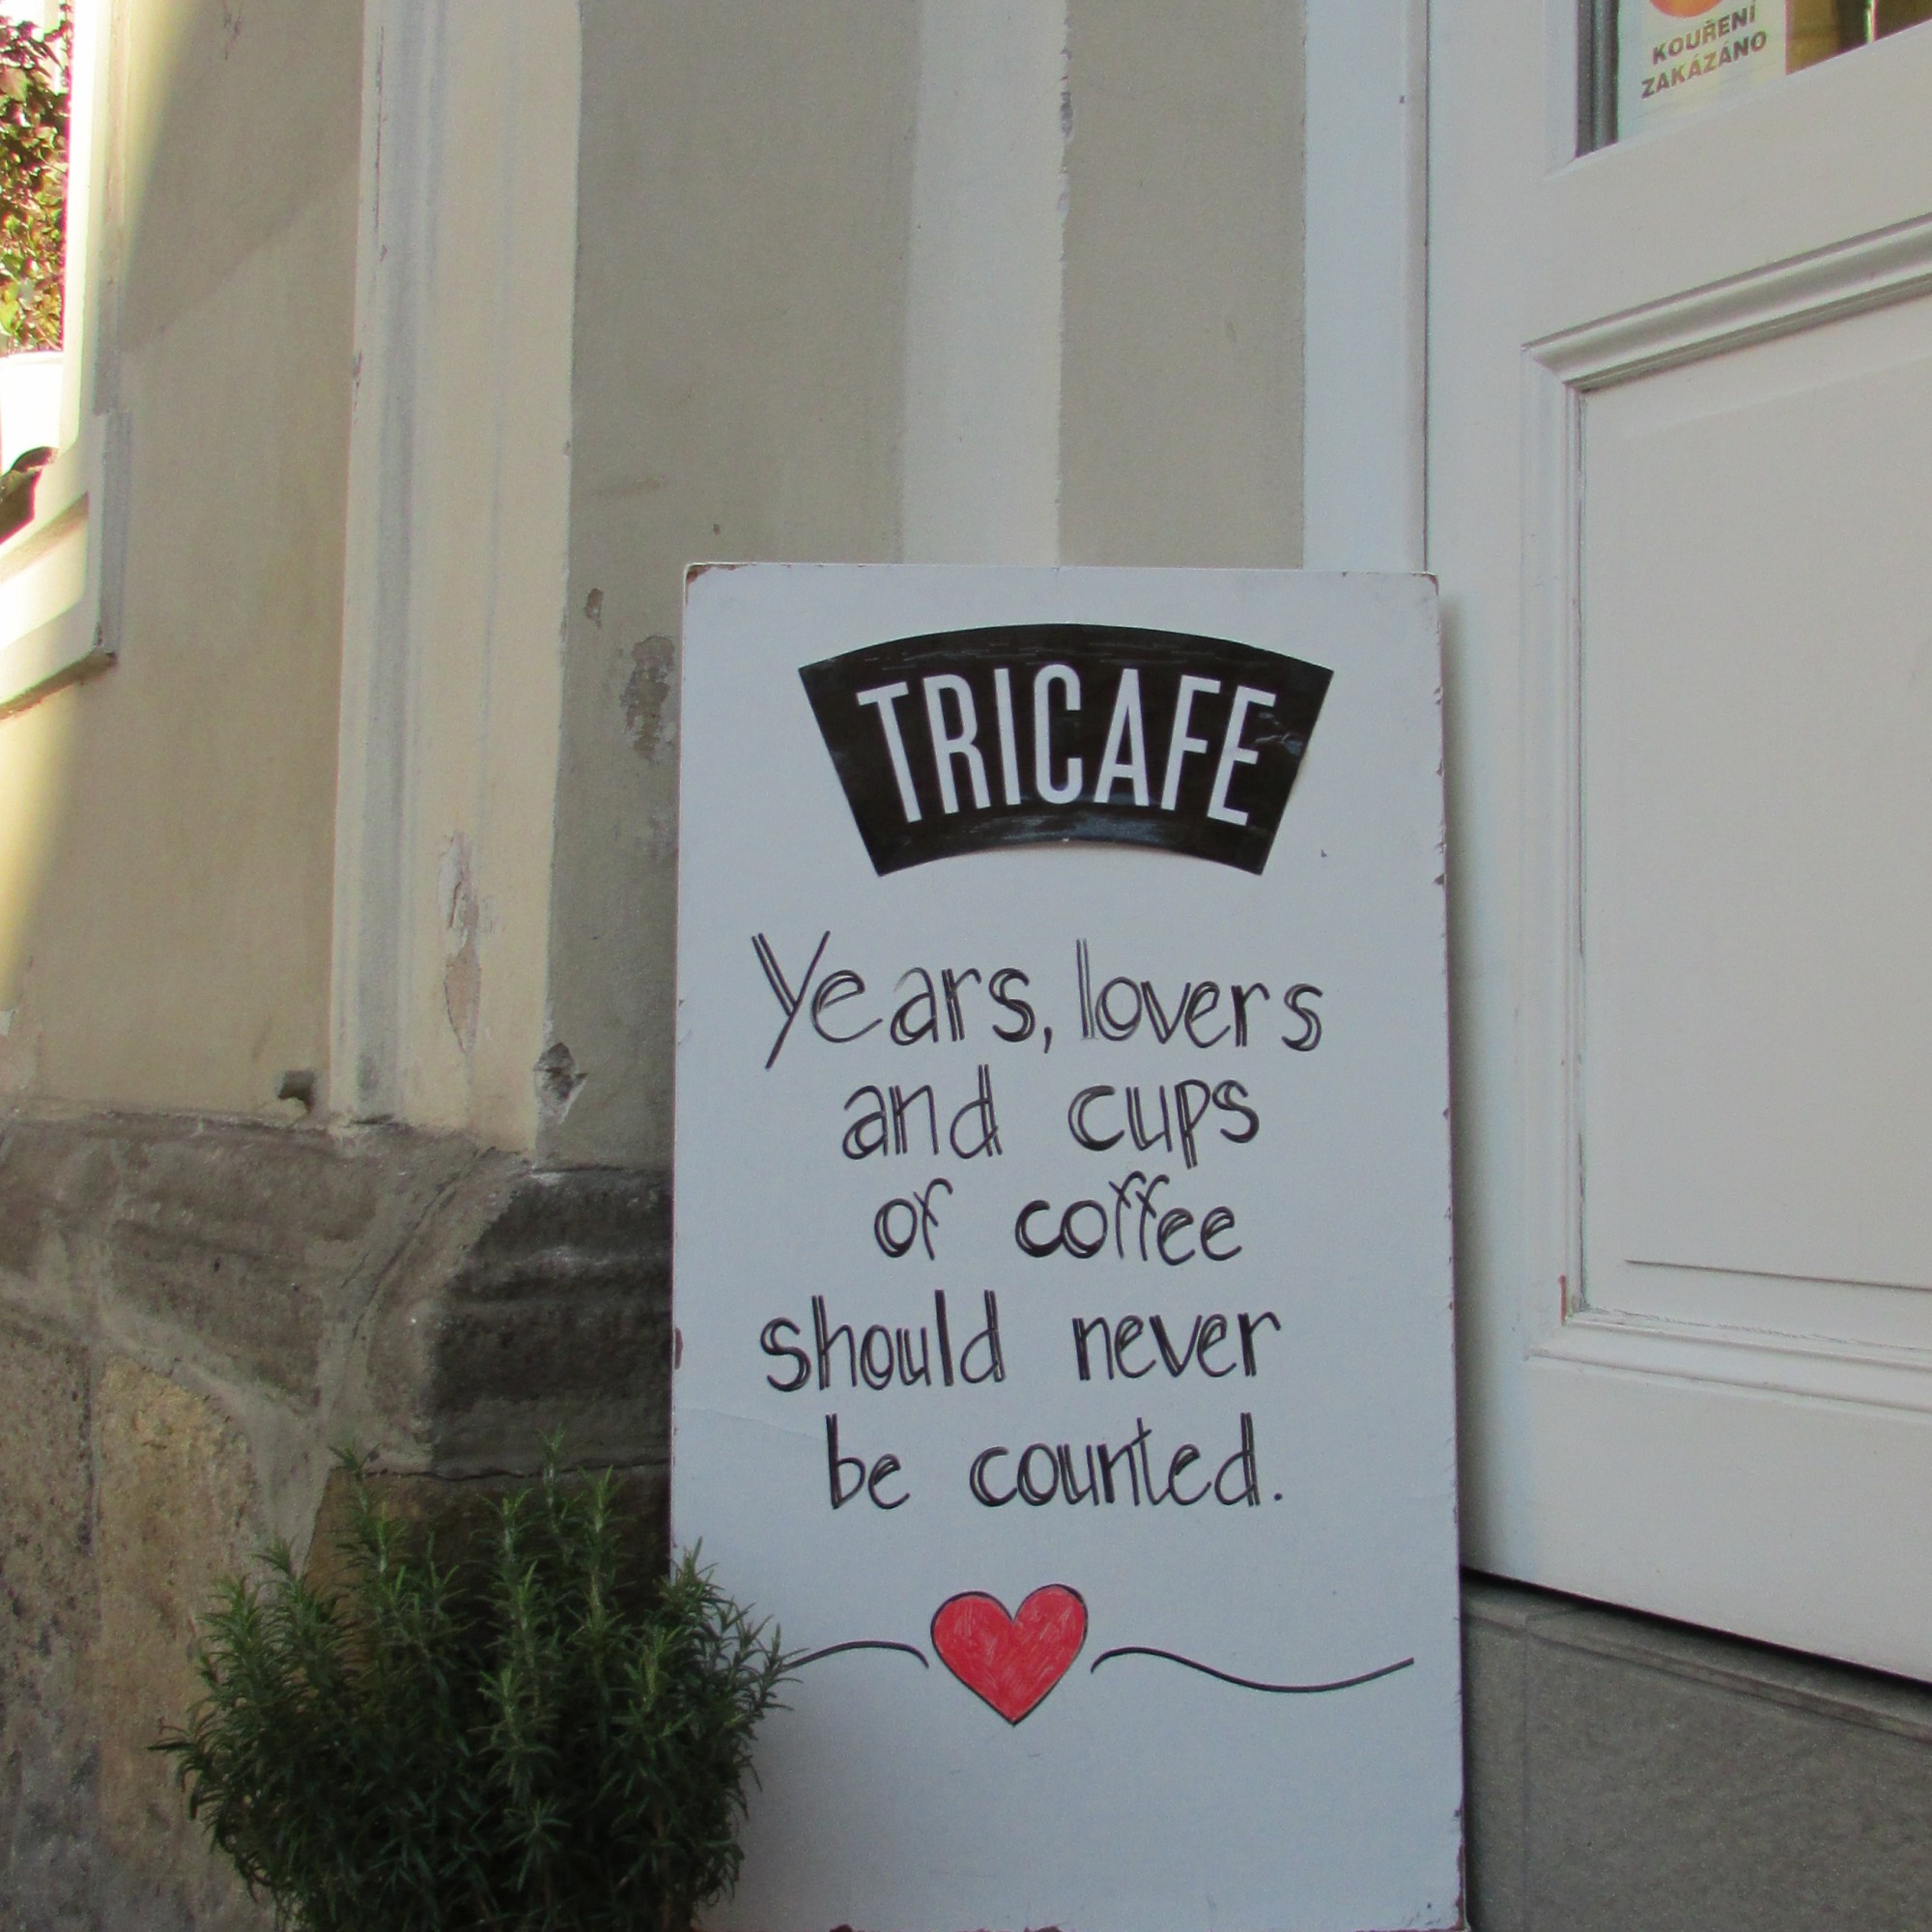 KOUŘENÍ
ZAKÁZÁNO
TRICAFE
Years, lovers
and cups
of coffee
should never
be counted.